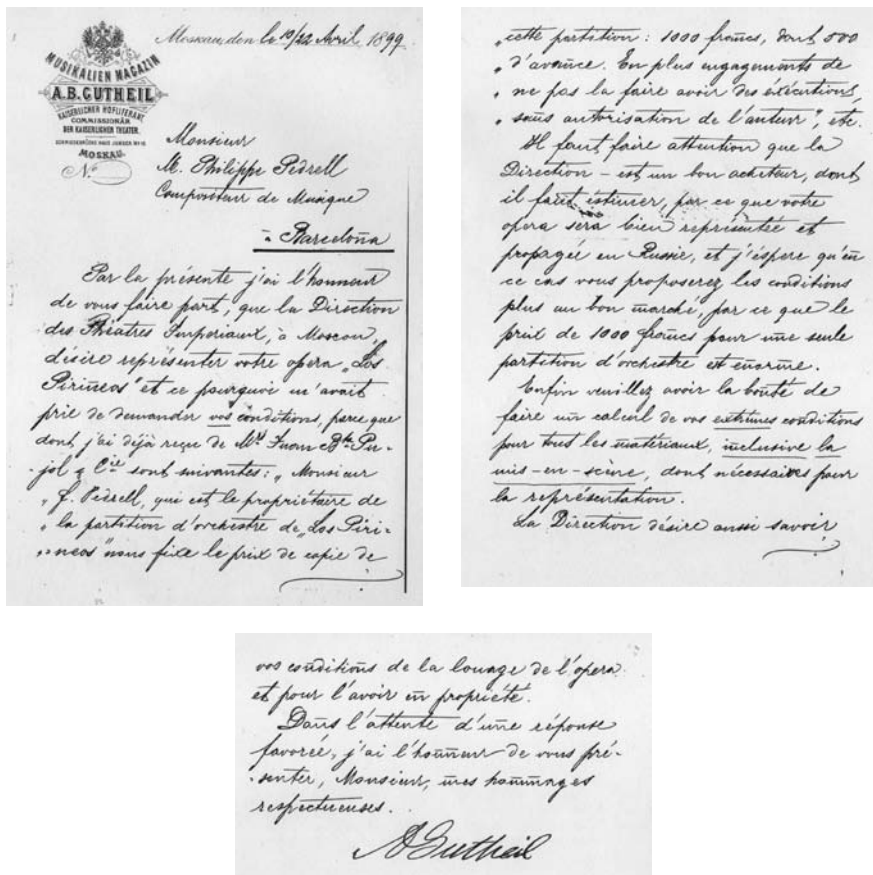 MUSIKALIEN MAGAZIN
A.B. GUTHEIL
KAISERLICHER HOFLIEFERANT
COMMISSIONÄR
DER KAISERLICHEN THEATER.
MOSKAU.
No
Moskau, den le 10/22 Avril 1899
Monsieur
M. Philippe Pedrell
Compositeur de Musique
à Barceloña
Par la présente j'ai l'honneur
de vous faire part, que la Direction
des Théatres Imperiaux, à Moscou,
désire représenter votre opera „Los
Pirineos" et ce pourquoi m'avait
prie de demander vos conditions, parce que
dont j'ai déjà reçue de Mr. Juan Bta Pu-
jol & Cie sont suivantes: „Monsieur
„ F. Pedrell, qui est le propriétaire de
„ la partition d'orchestre de „Los Piri-
„ neos" nous fixe le prix de copie de
„ cette partition: 1000 francs, dont 500
„ d'avance. En plus engagements de
„ ne pas la faire avoir des éxécutions,
„ sans autorisation de l'auteur", etc.
Il faut faire attention que la
Direction – est un bon acheteur, dont
il faut éstimer, par ce que votre
opera sera bien représentée et
propagée en Russie, et j'éspere qu'en
ce cas vous proposerez les conditions
plus au bon marché, par ce que le
prix de 1000 francs pour une seule
partition d'orchestre est enorme.
Enfin veuillez avoir la bonté de
faire un calcul de vos extrèmes conditions
pour tous les matériaux, inclusive la
mis-en-scène, dont nécessaires pour
la représentation.
La Direction désire aussi savoir
vos conditions de la louage de l'opera
et pour l'avoir en propriété.
Dans l'attente d'une réponse
favorée, j'ai l'honneur de vous pré-
senter, Monsieur, mes hommages
respectueuses.
A Gutheil